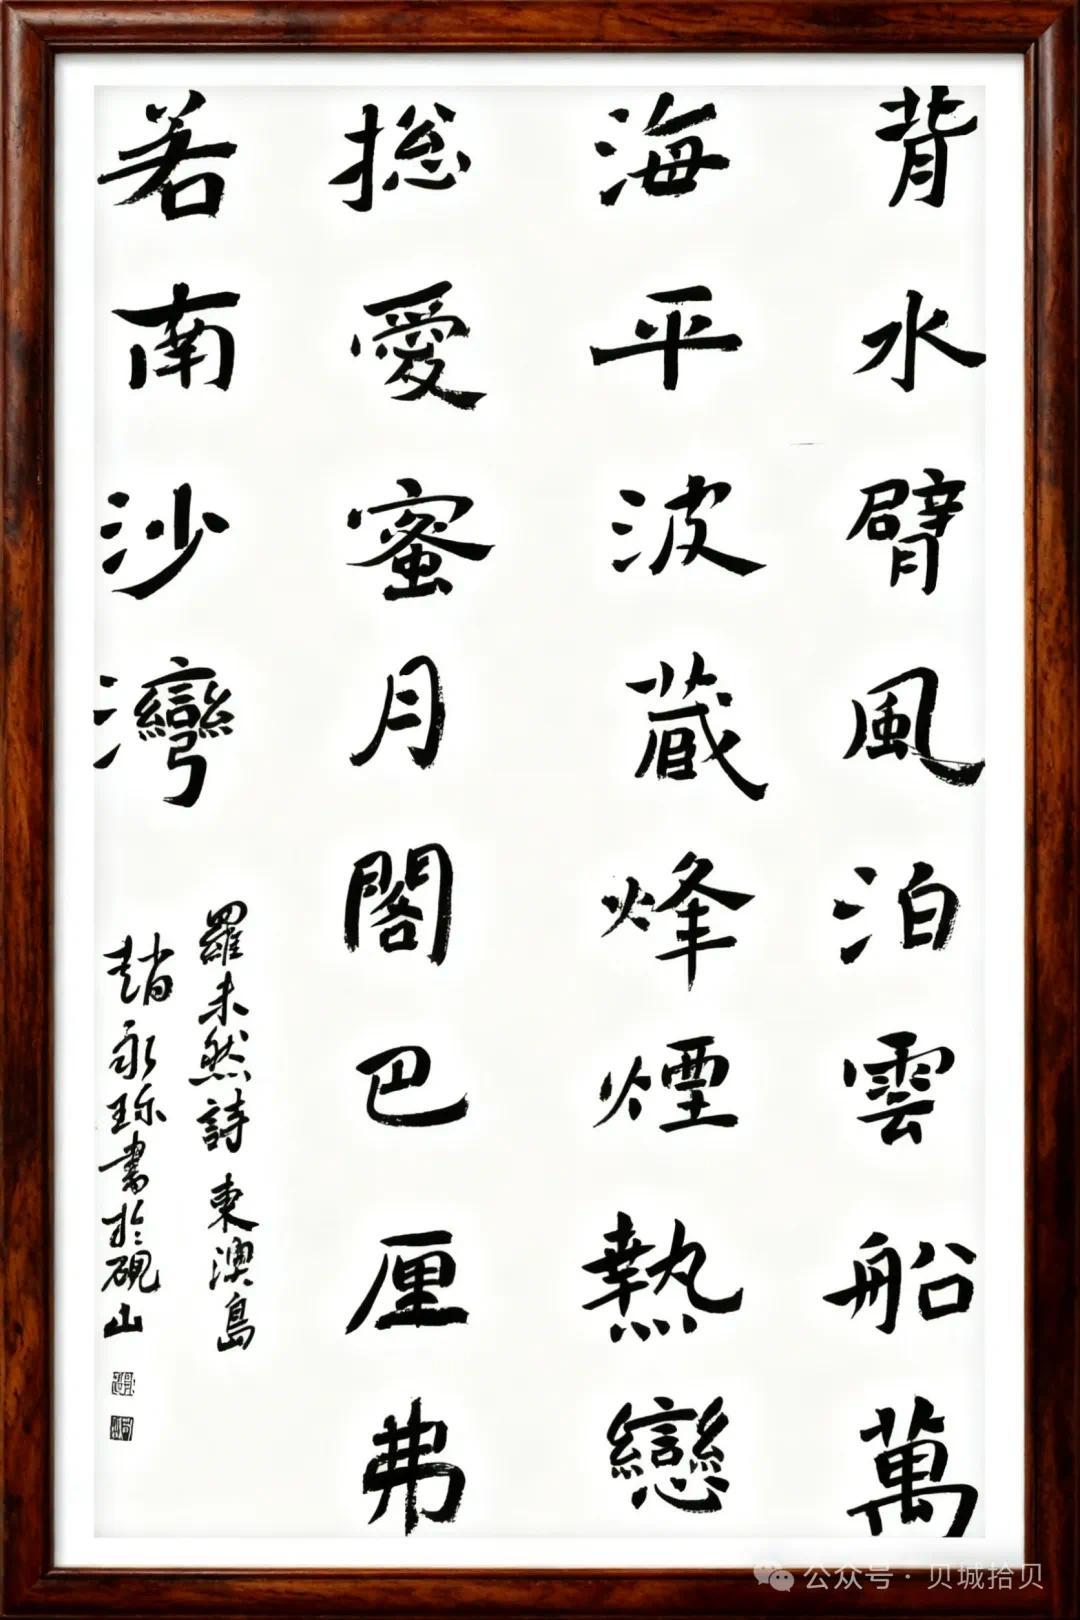 背水臂風泊雲船萬
海平波藏烽煙熱戀
摠愛蜜月閣巴厘弗
若南沙灣
羅未然詩東澳島
趙永珎書於硯山
公众号·贝城拾贝